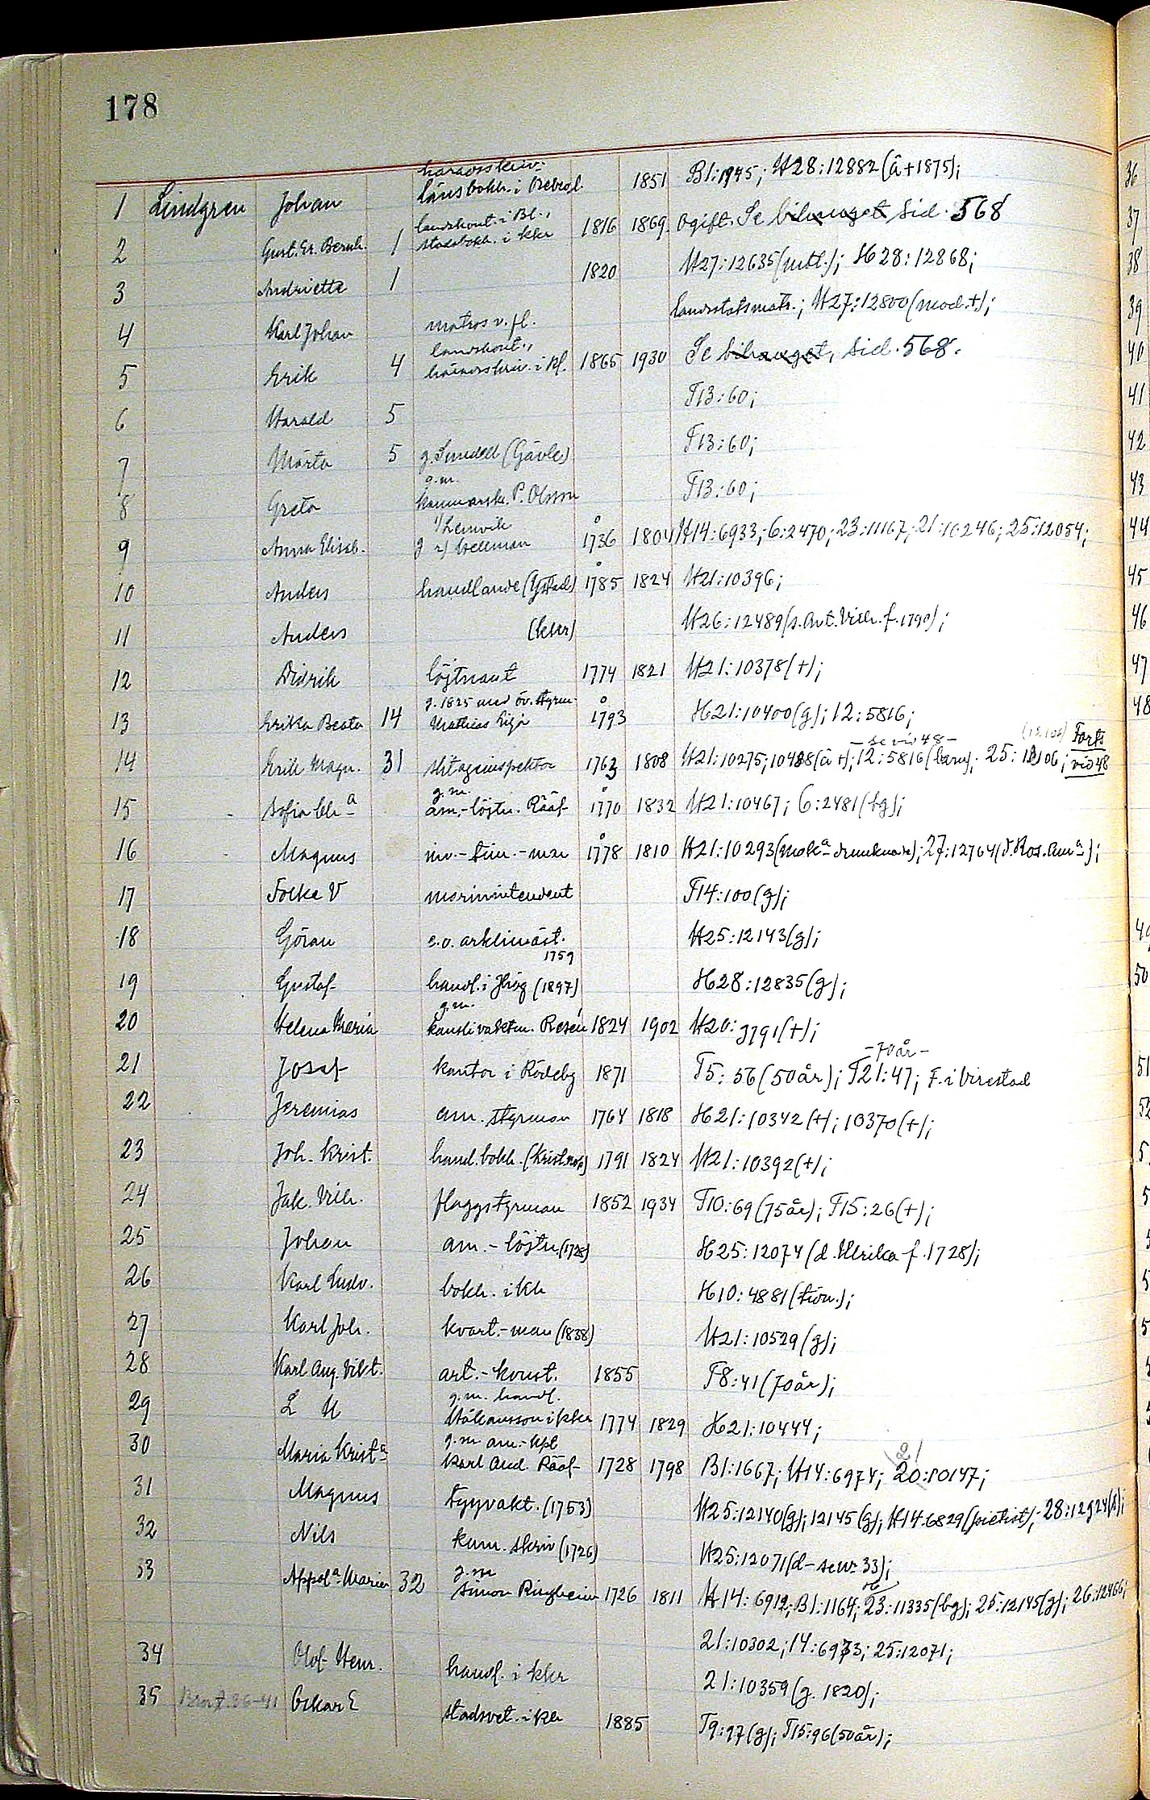 178
häradsskriv.
1 Lindgren Johan länsbokh. i Örebrol. 1851 B1:1945; H28:12882 (â+1875);
landskont. i Bl.,
2 Gust. Er. Bernh. 1 stadsbokh. i kkr 1816 1869 ogift. Se bihanget, Sid. 568
3 Andrietta 1 1820 H27:12635 (mtl.); H28:12868;
4 Karl Johan matros v. fl. landsstatsmatr.; H27:12800 (mod.+);
landskont.,
5 Erik 4 häradsskriv. i kl. 1865 1930 Se bihanget, Sid. 568.
6 Harald 5 T13:60;
7 Märta 5 g. Smedell (Gävle) T13:60;
g.m.
8 Greta kammarskr. P. Olsson T13:60;
1/ Lenvik
9 Anna Elisab. g 2/ Wellman 1736 1804 H14:6933; 6:2470; 23:11167; 21:10246; 25:12054;
10 Anders handlande (Ystad) 1785 1824 H21:10396;
11 Anders (kkr) H26:12489 (s. Ant. Vilh. f. 1790);
12 Didrik löjtnant 1774 1821 H21:10378 (+);
g. 1825 med öv. styrm.
13 Erika Beata 14 Mathias Eijő 1793 H21:10400 (g); 12:5816;
- se vid 48 - (12106) Forts
14 Erik Magn. 31 slitageinspektor 1763 1808 H21:10275; 10488 (â+); 12:5816 (barn); 25:12106; vid 48
g.m.
15 Sofia Chª am.-löjtn. Rääf 1770 1832 H21:10467; 6:2481 (bg);
16 Magnus inv.-tim.-man 1778 1810 H21:10293 (mokª drunknade); 27:12764 (d. Ros. Amª);
17 Folke V marinintendent T14:100 (g);
18 Göran e.o. arklimäst. H25:12143 (g);
1759
19 Gustaf handl. i Jkpg (1897) H28:12835 (g);
g.m.
20 Helena Maria kanslivaktm. Rosén 1824 1902 H20:9791 (+);
- 70 år -
21 Josef kantor i Rödeby 1871 T5:56 (50 år); T21:47; F. i Virestad
22 Jeremias am. styrman 1764 1818 H21:10342 (+); 10370 (+);
23 Joh. Krist. hand. bokh. (Krist.nop) 1791 1824 H21:10392 (+);
24 Jak. Vilh. flaggstyrman 1852 1934 T10:69 (75 år); T15:26 (+);
25 Johan am.-löjtn (1728) H25:12074 (d. Ulrika f. 1728);
26 Karl Ludv. bokh. i kkr H10:4881 (tion.);
27 Karl Joh. kvart.-man (1838) H21:10529 (g);
28 Karl Aug. Vikt. art.-konst. 1855 T8:41 (70 år);
g.m. handl.
29 L U Håkansson i kkr 1774 1829 H21:10444;
g.m am.-kpt 21
30 Maria Kristª Karl And. Rääf 1728 1798 B1:1667; H14:6974; 20:10147;
31 Magnus tygvakt. (1753) H25:12140 (g); 12145 (g); H14:6829 (pietist); 28:12924 (s);
32 Nils kam. skriv (1726) H25:12071 (d - se nr 33);
g.m
33 Appolª Maria 32 Simon Ringheim 1726 1811 H14:6912; B1:1164; 23:11335 (bg); 25:12145 (g); 26:12466;
21:10302; 14:6973; 25:12071;
34 Olof Henr. handl. i kkr 21:10359 (g. 1820);
35 Oskar E stadsvet. i kkr 1885 T9:97 (g); T15:96 (50 år);
36
37
38
39
40
41
42
43
44
45
46
47
48